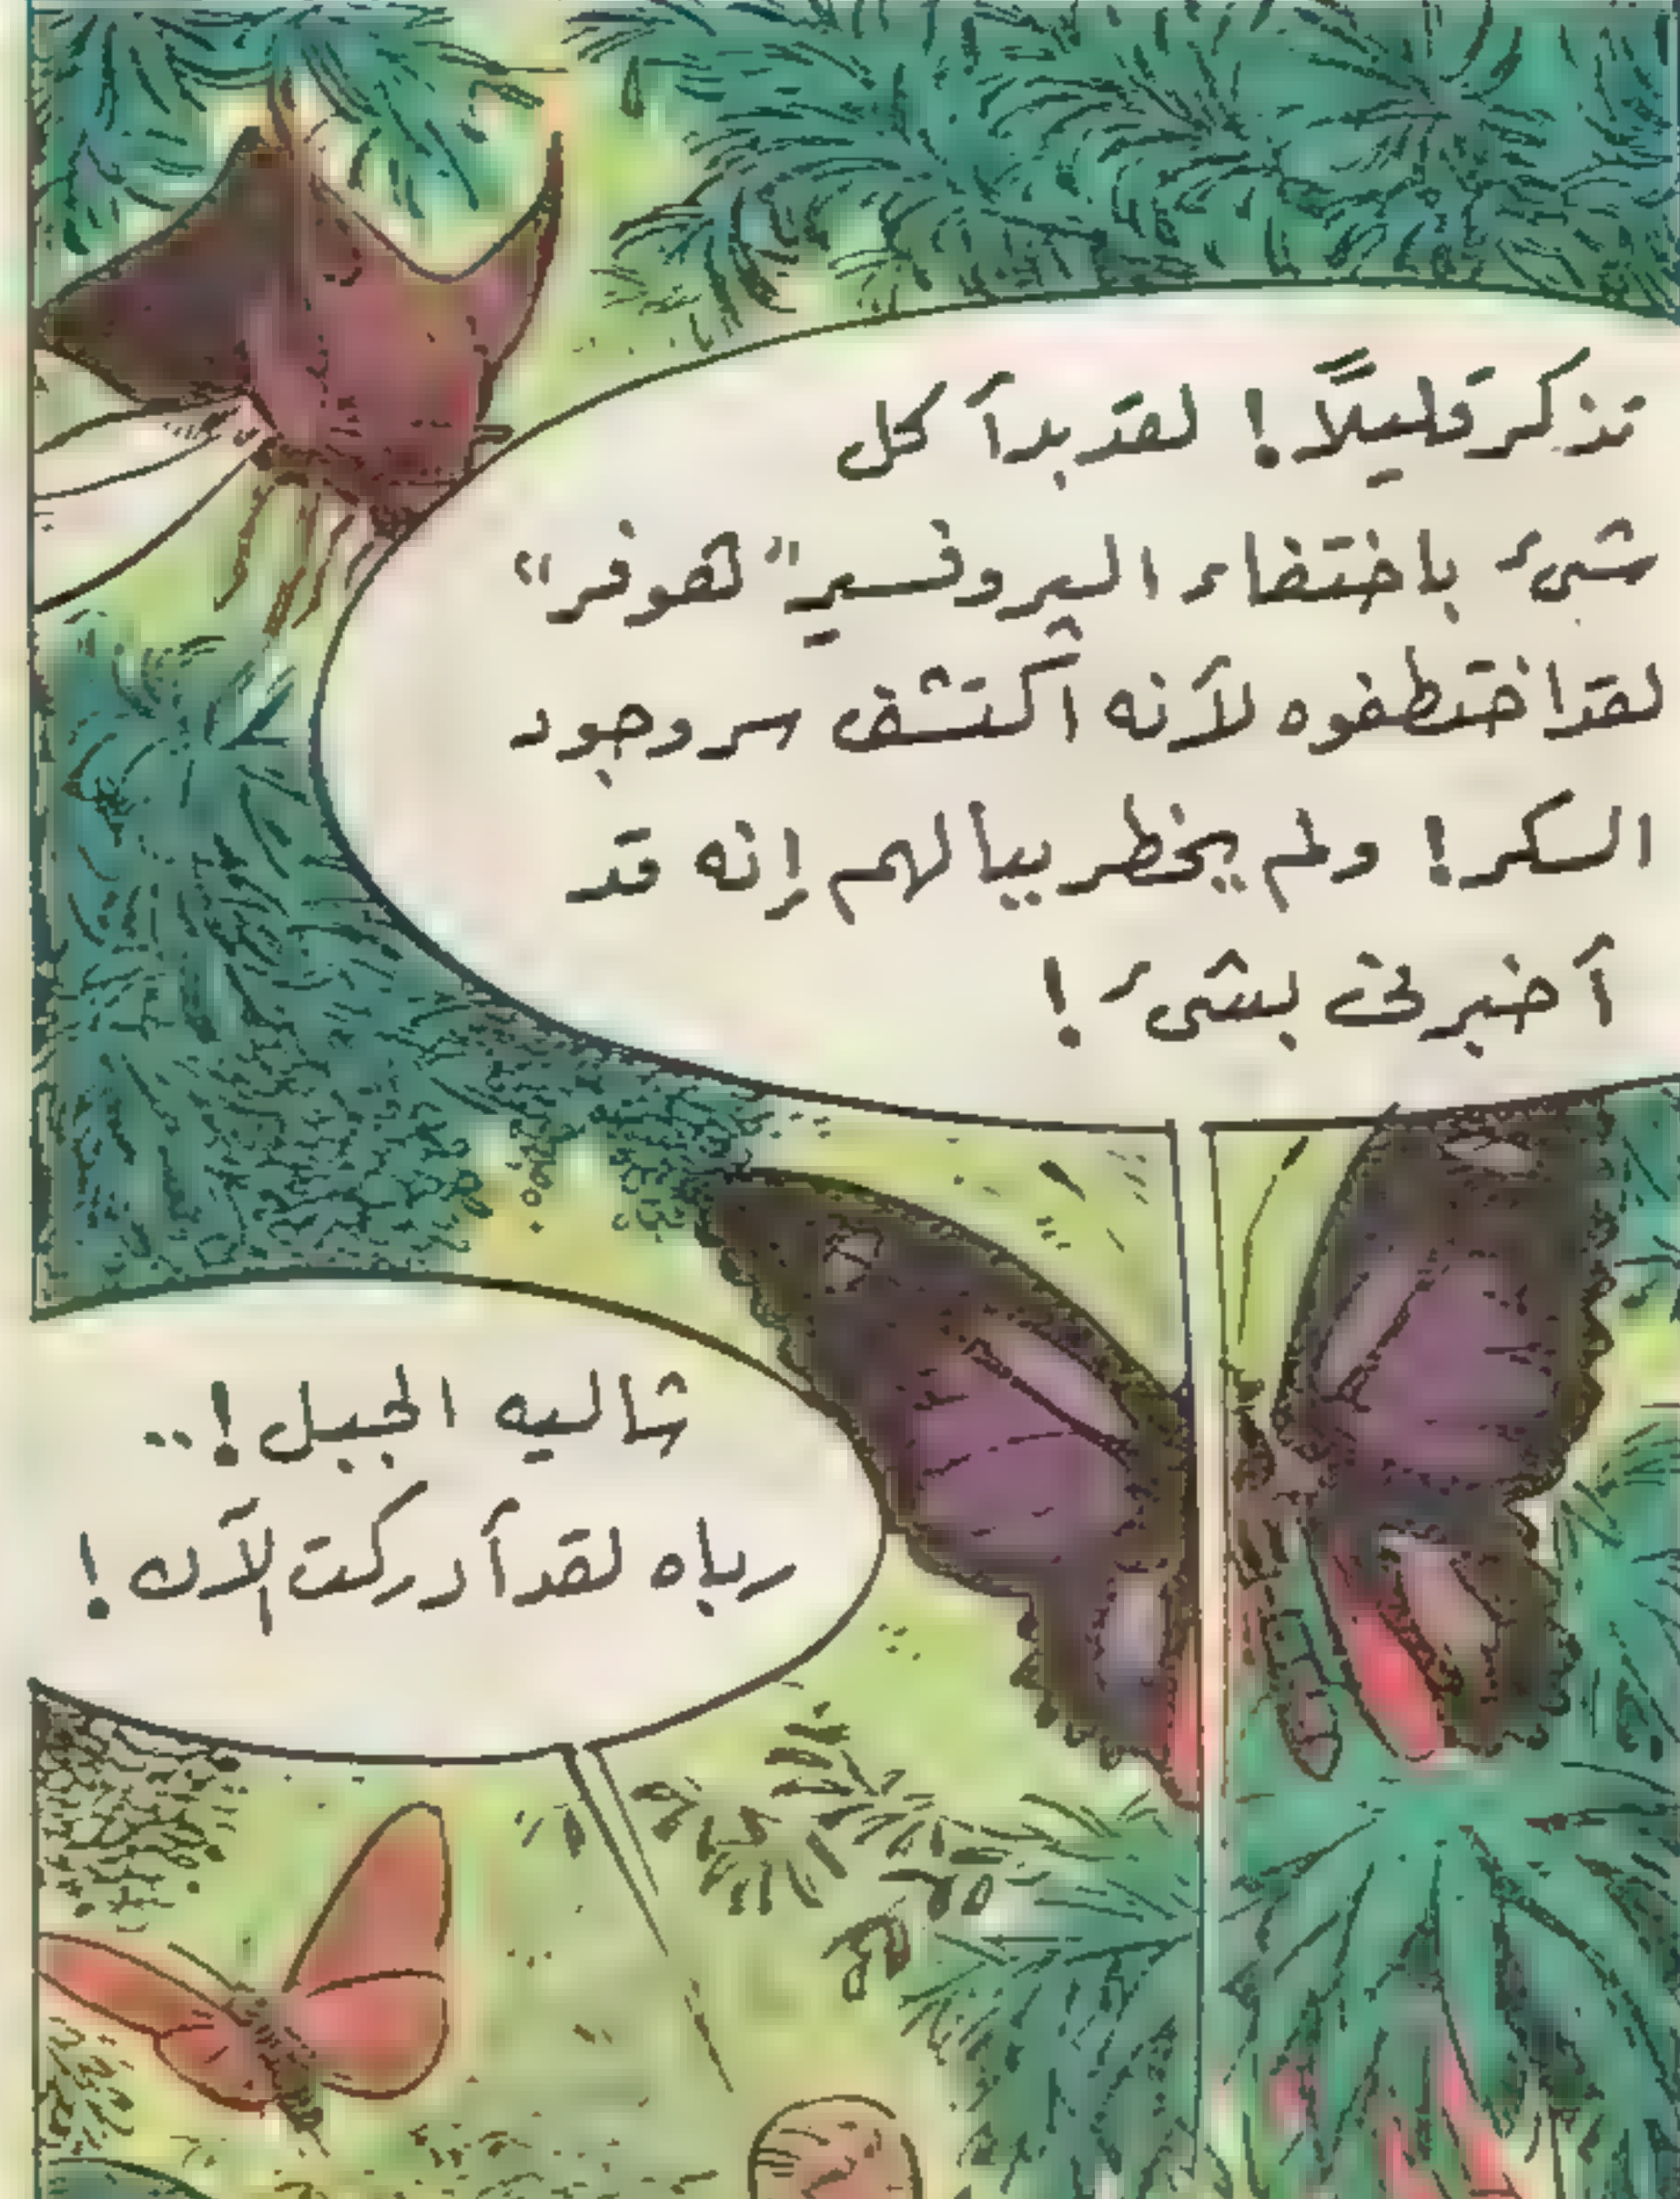 تذكر قليلًا! لقد بدأ كل
شئ باختفاء البروفسير "لهوفر"
لقد اختطفوه لأنه اكتشف سر وجود
السكر! ولم يخطر ببالهم إنه قد
أخبرنى بشئ!
شاليه الجبل!..
رباه لقد أدركت الآن!